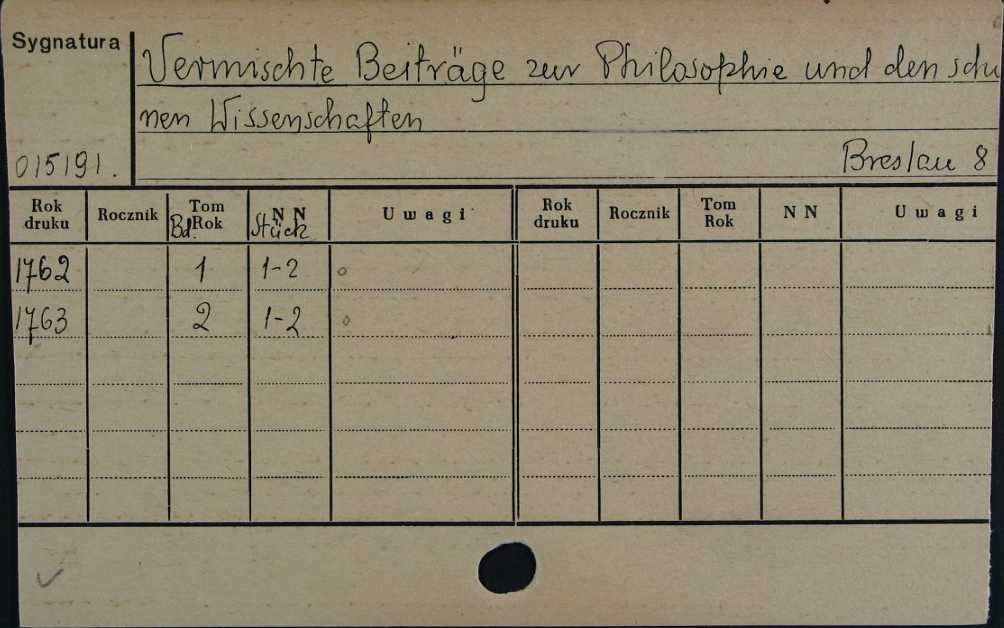 Sygnatura
Vermischte Beiträge zur Philosophie und den schö
nen Wissenschaften
015191.
Breslau 8
Rok druku Rocznik Tom Rok Bd. N N Stück Uwagi Rok druku Rocznik Tom Rok N N Uwagi
1762 1 1-2 o
1763 2 1-2 o